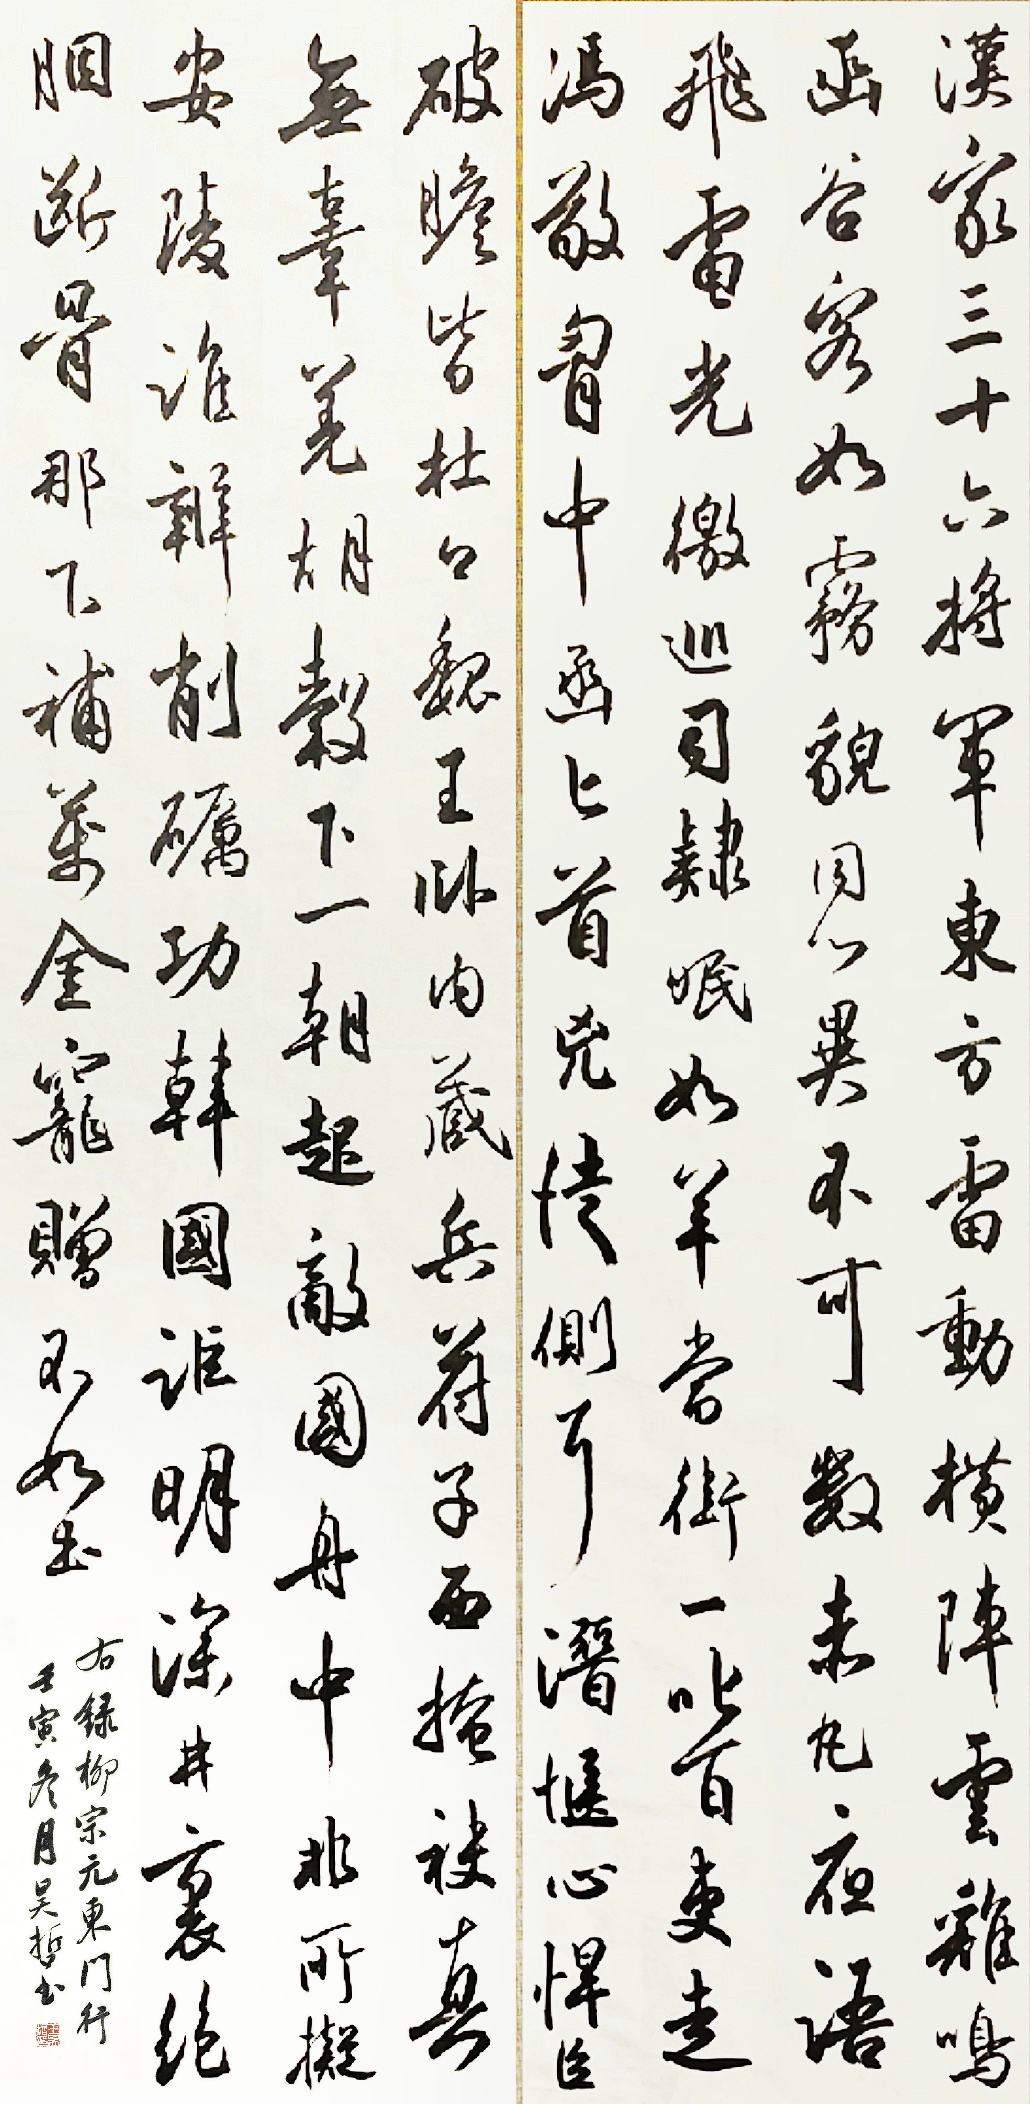 漢家三十六將軍東方雷動橫陣雲雞鳴
函谷客如霧貌同心異不可數赤丸夜語
飛電光徼巡司隸眠如羊當街一叱百吏走
馮敬胷中函匕首兇徒側耳潛愜心悍臣
破膽皆杜口魏王臥內藏兵符子西掩袂真
無辜羌胡轂下一朝起敵國舟中非所擬
安陵誰辨削礪功韓國詎明深井裏絕
胭斷骨那下補萬金寵贈不如土
右録柳宗元東門行
壬寅冬月吴哲书